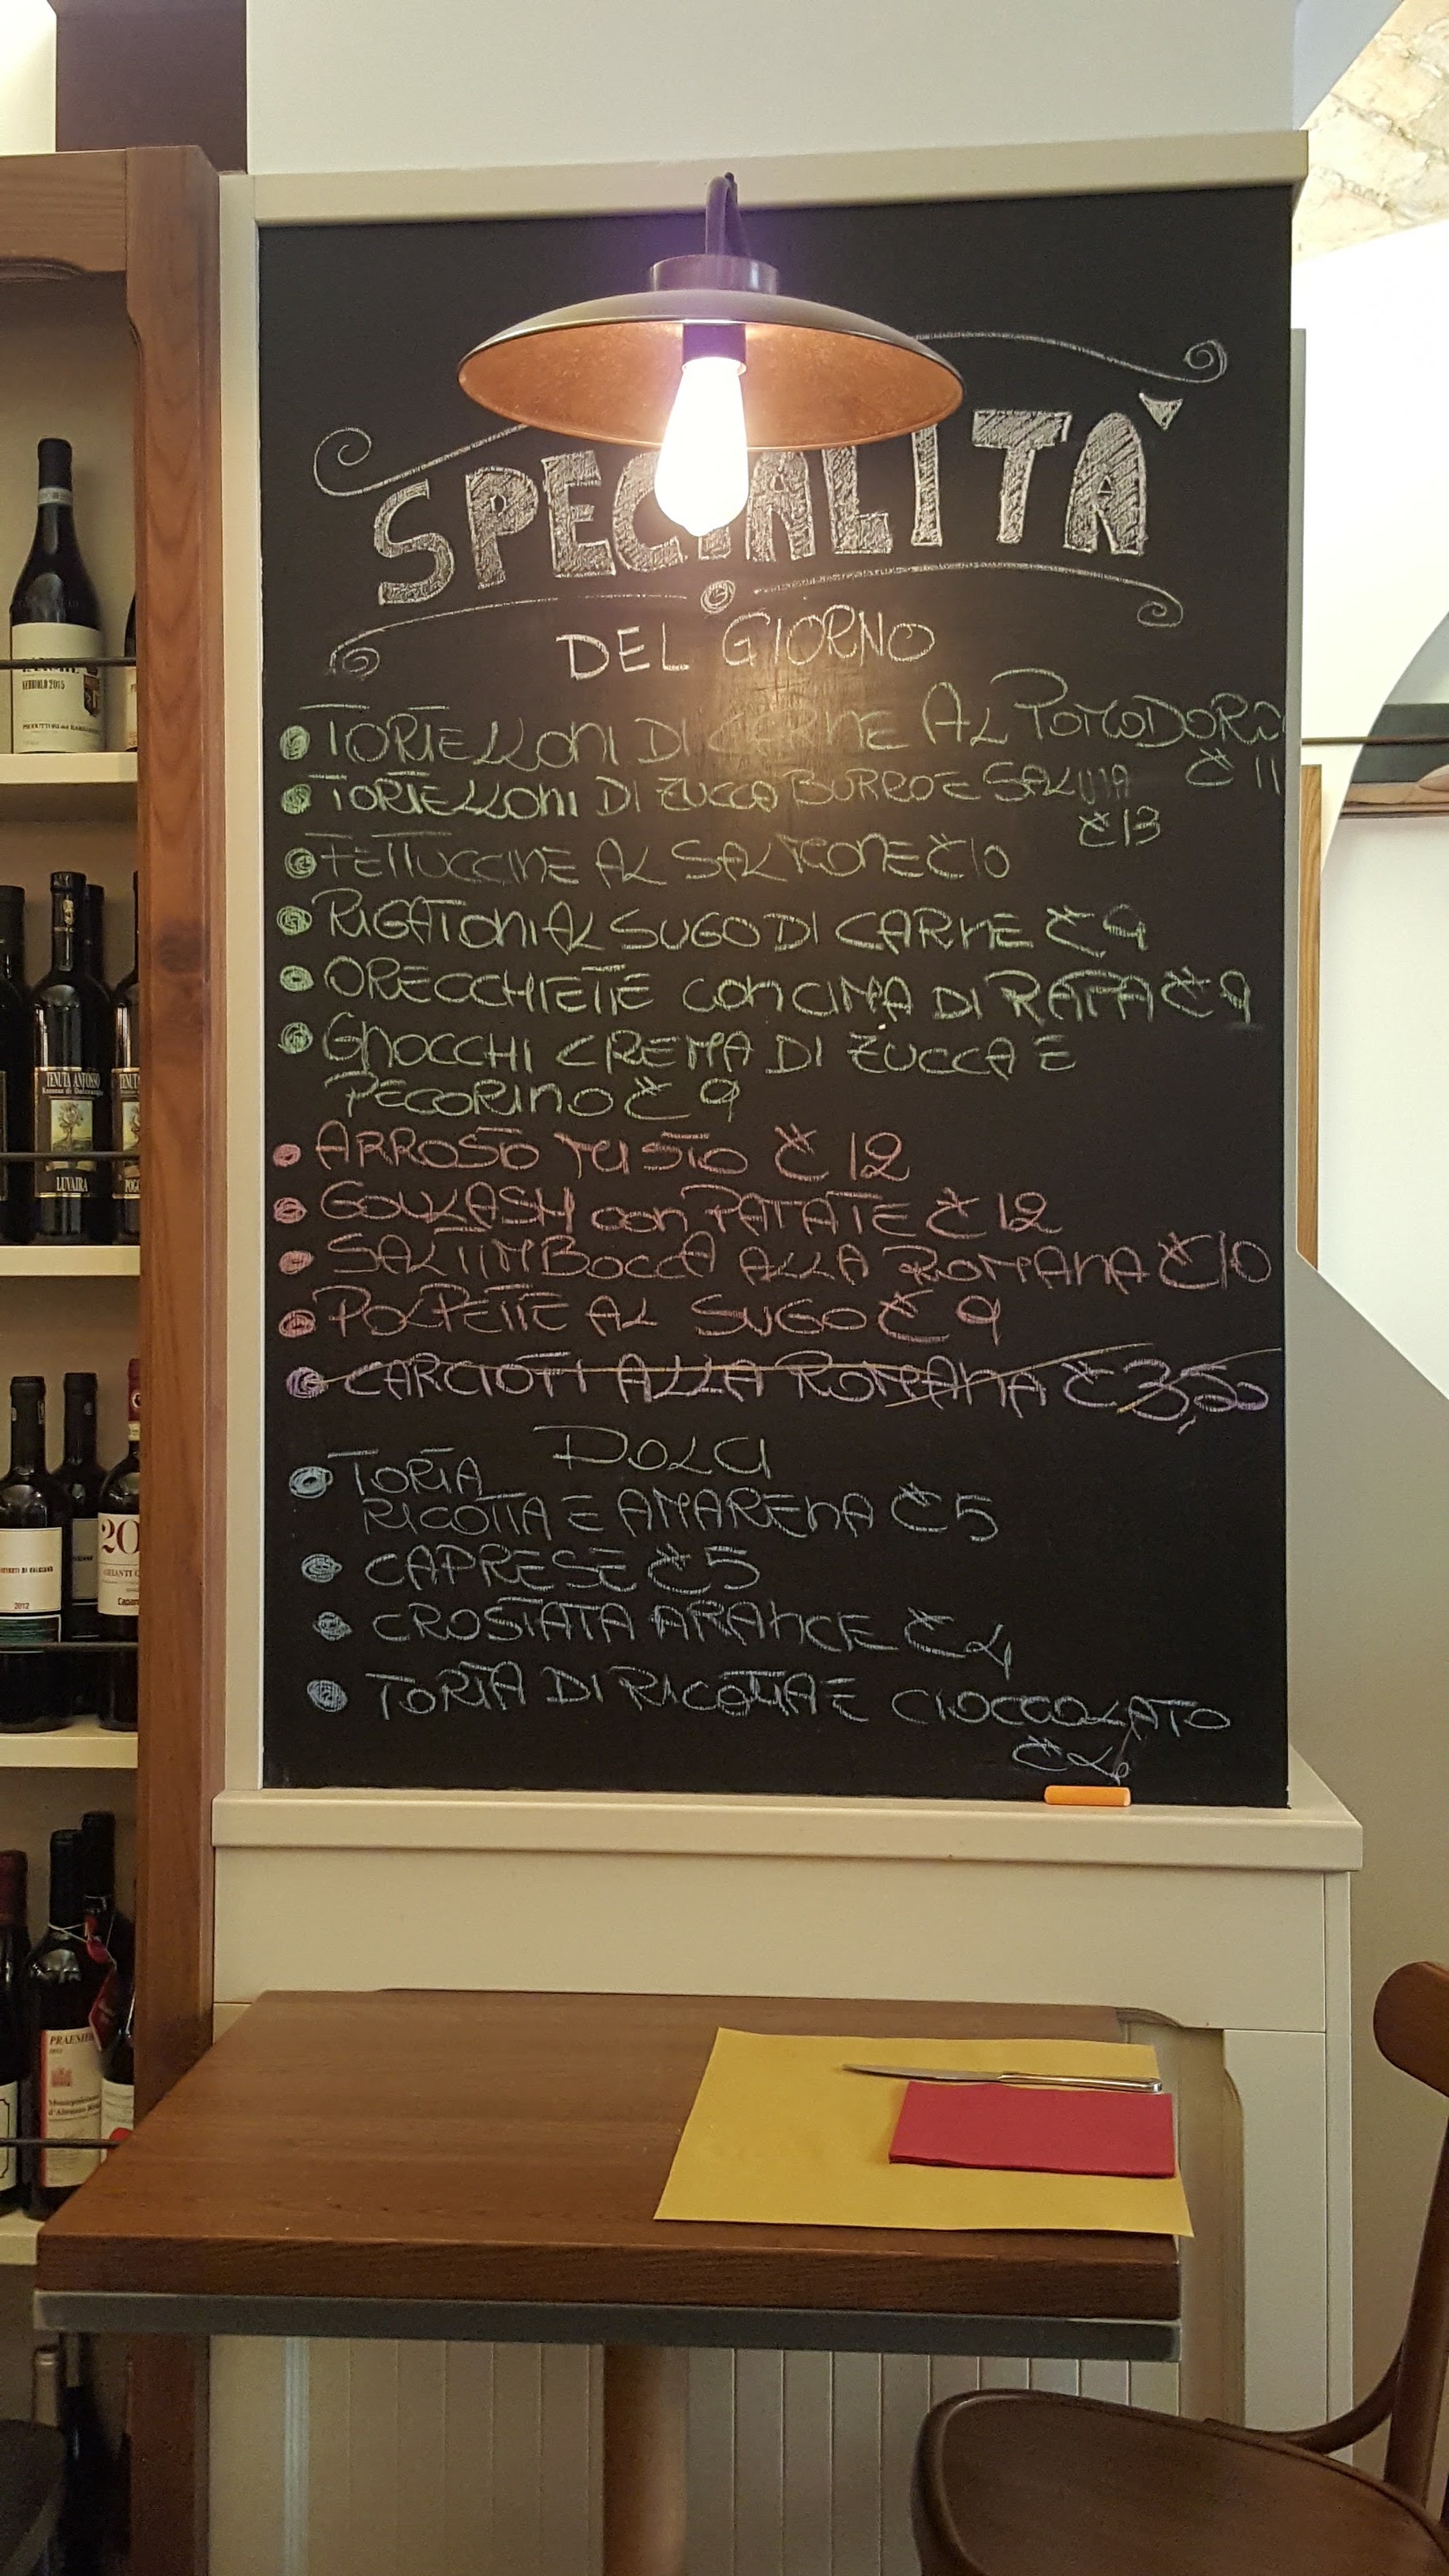 SPECIALITÀ
DEL GIORNO
TORTELLONI DI CARNE AL POMODORO
€ 11
TORTELLONI DI ZUCCA BURRO E SALVIA
€ 13
FETTUCCINE AL SALMONE € 10
RIGATONI AL SUGO DI CARNE € 9
ORECCHIETTE CON CIMA DI RAPA € 9
GNOCCHI CREMA DI ZUCCA E
PECORINO € 9
ARROSTO MISTO € 12
GOULASH CON PATATE € 12
SALTIMBOCCA ALLA ROMANA € 10
POLPETTE AL SUGO € 9
CARCIOFI ALLA ROMANA € 3,50
DOLCI
TORTA
RICOTTA E AMARENA € 5
CAPRESE € 5
CROSTATA ARANCE € 4
TORTA DI RICOTTA E CIOCCOLATO
€ 4
LANGHE
NEBBIOLO 2015
TENUTA ANFOSSO
LUVAIRA
TENUTA
POGG
2012
20
CHIANTI C
PRAENE